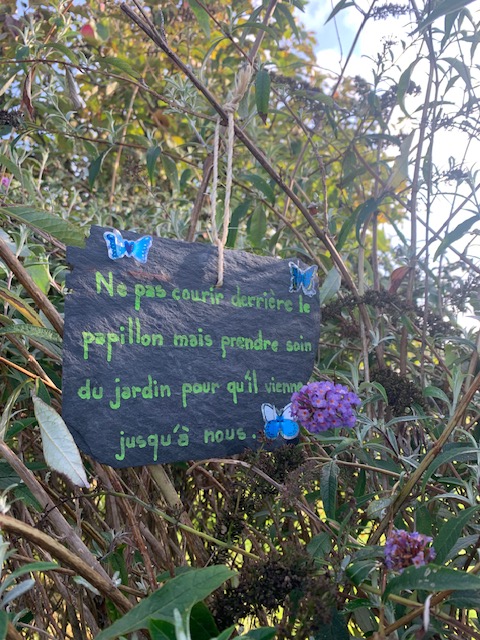 Ne pas courir derrière le
papillon mais prendre soin
du jardin pour qu'il vienne
jusqu'à nous.